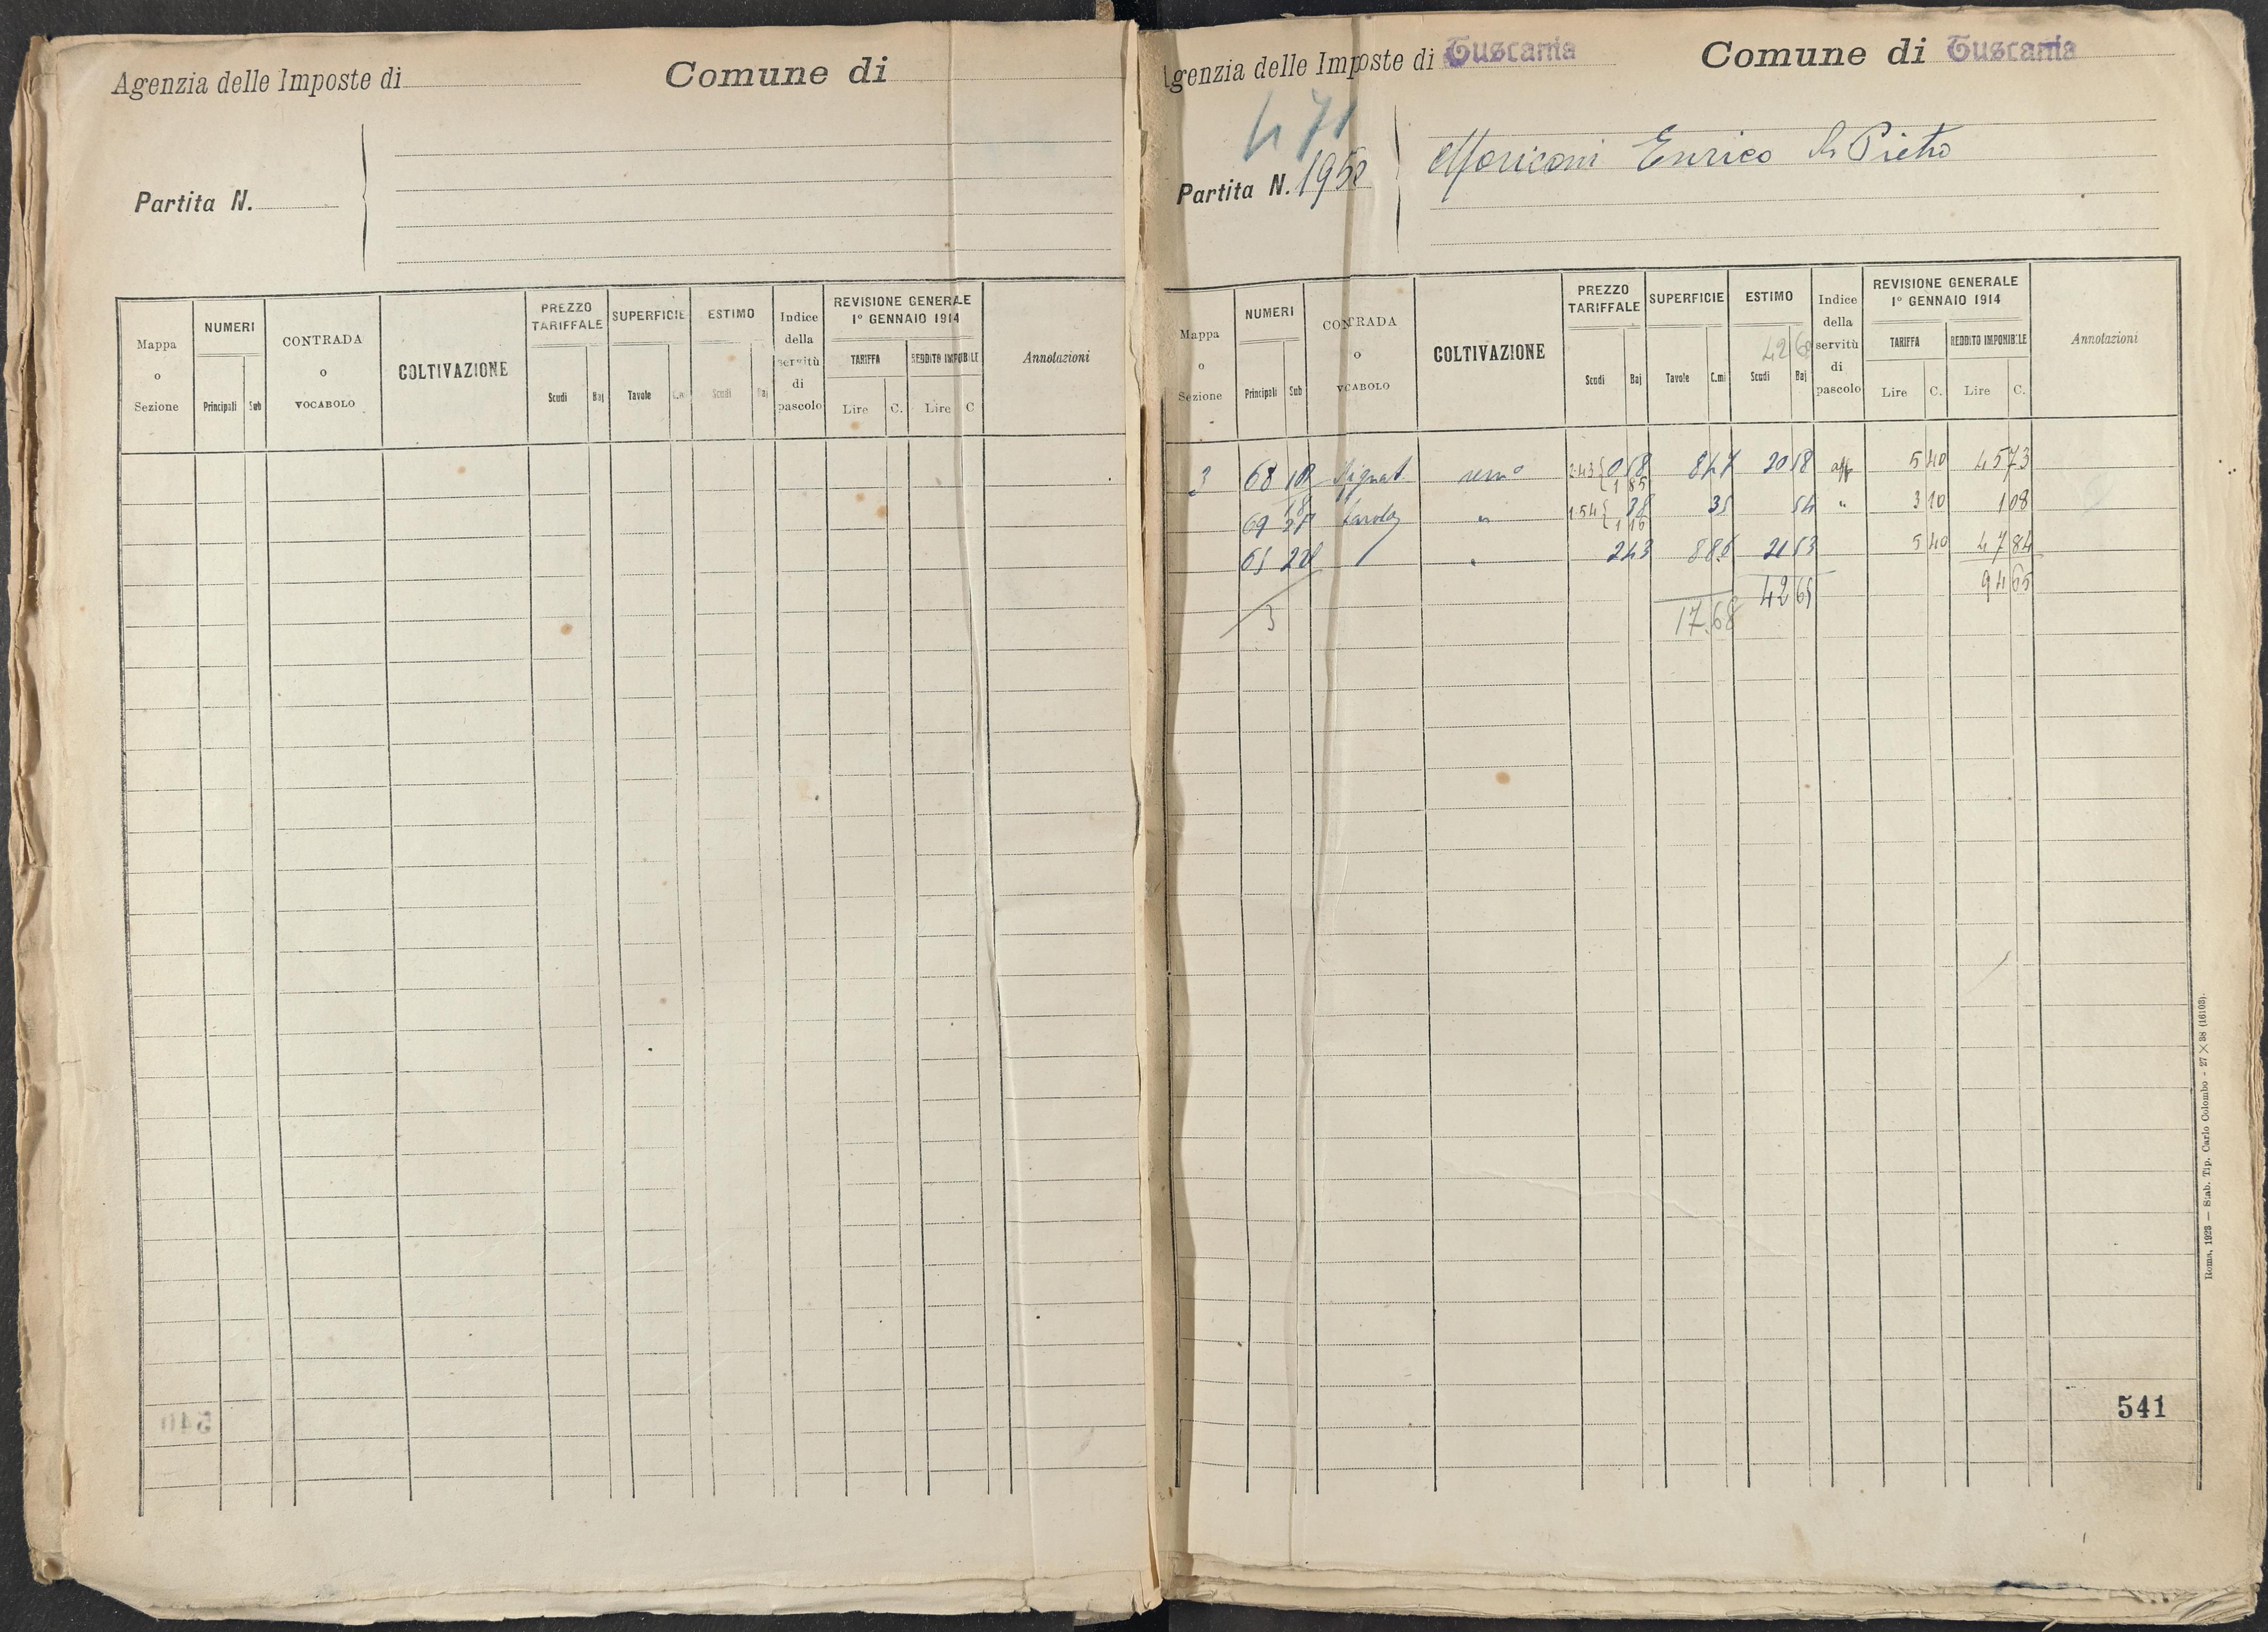 Agenzia delle Imposte di
Comune di
Partita N.
Mappa o Sezione
NUMERI
Principali Sub
CONTRADA o VOCABOLO
COLTIVAZIONE
PREZZO TARIFFALE
Scudi Baj
SUPERFICIE
Tavole C.mi
ESTIMO
Scudi Baj
Indice della servitù di pascolo
REVISIONE GENERALE
1° GENNAIO 1914
TARIFFA
Lire C.
REDDITO IMPONIBILE
Lire C
Annotazioni
540
genzia delle Imposte di Tuscania
Comune di Tuscania
471
Partita N. 1952
Moriconi Enrico di Pietro
Mappa o Sezione
NUMERI
Principali Sub
CONTRADA o VOCABOLO
COLTIVAZIONE
PREZZO TARIFFALE
Scudi Baj
SUPERFICIE
Tavole C.mi
ESTIMO
42 6
Scudi Baj
Indice della servitù di pascolo
REVISIONE GENERALE
1° GENNAIO 1914
TARIFFA
Lire C.
REDDITO IMPONIBILE
Lire C.
Annotazioni
3 68 2.43 1 85 847 20 58 5 40 45 73
69 1.54 1 16 35 54 " 3 10 1 08
65 2 43 886 21 53 5 40 47 84
42 65 94 65
3 17.68
541
Roma, 1923 — Stab. Tip. Carlo Colombo - 27 × 38 (16103).